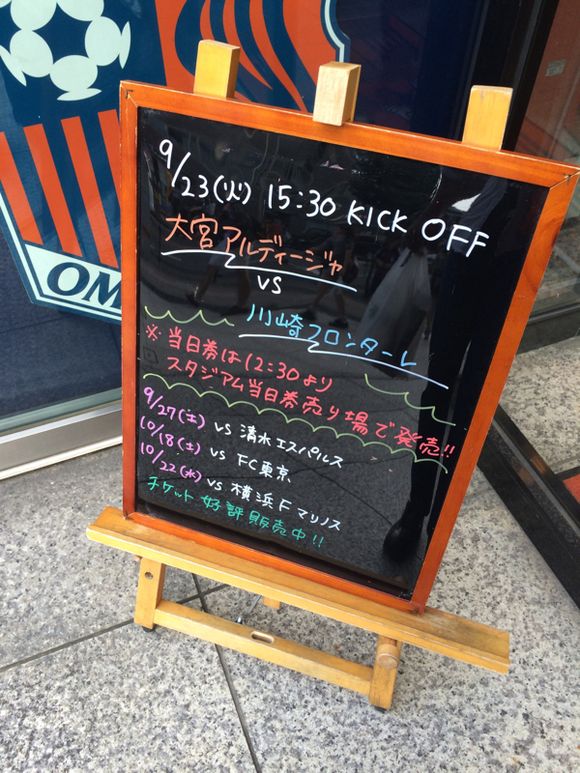 9/23(火) 15:30 KICK OFF
大宮アルディージャ
vs
川崎フロンターレ
※当日券は12:30より
スタジアム当日券売り場で発売!!
9/27(土) vs 清水エスパルス
10/18(土) vs FC東京
10/22(水) vs 横浜Fマリノス
チケット好評販売中!!
OM